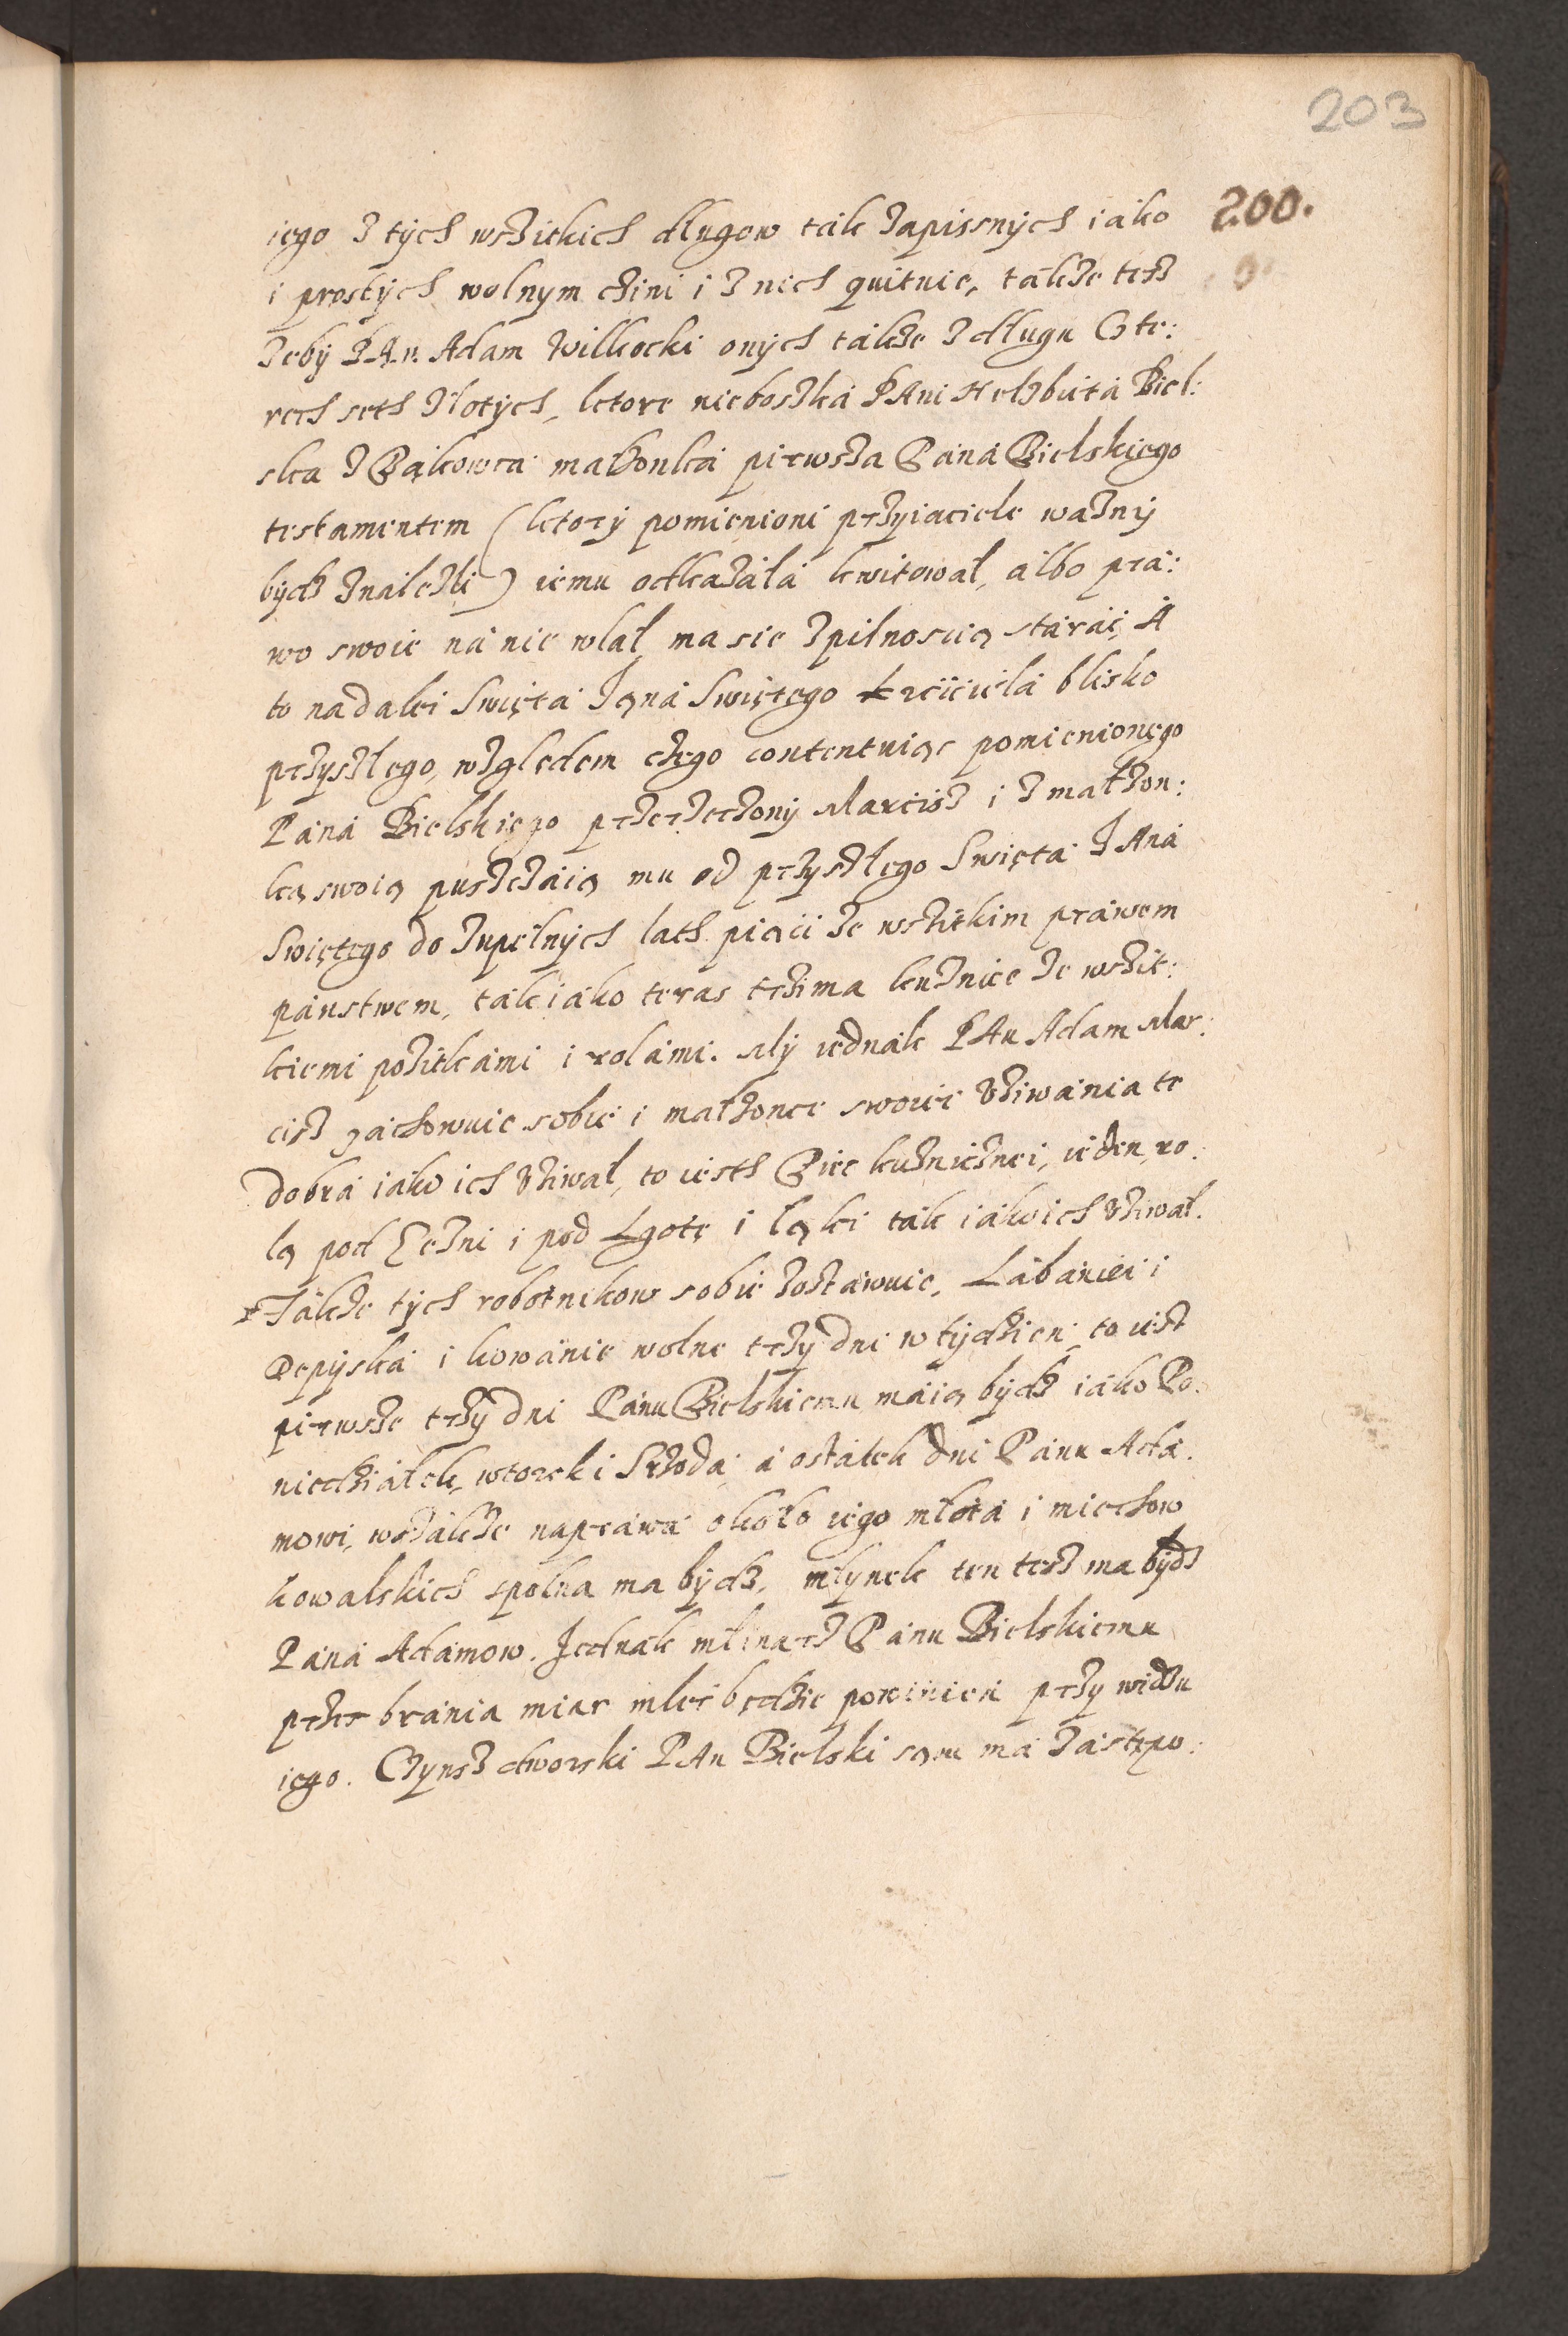 203
200.
iego z tých wszitkich długow ták zapissných iáko
i prostých wolnym czini i z nich quituie, tákze tesz
zeby PAn Adam Wilkocki oných tákze z długu Czte:
rech seth złotych, ktore nieboszká PAni Helzbiutá Biel:
ska z Bąkowca małzonká pirwsza Páná Bielskięgo
testamentem (ktorý pomienioni przyiaciele waznÿ
býdz ználezli) iemu odkazáła kwitował, álbo prá:
wo swoie ná nie wlał, ma sie z pilnoscią stáráć, Á
to nadalei Swiętá Iąná Swiętęgo Krzciciela blisko
przyszlego, względem cżego contentuiąc pomienionęgo
Páná Bielskięgo przerzeczoný Marcisz i z małzon:
ką swoią puszczáią mu od przyszłego Swiętá IAná
Swiętęgo do zupełných lath piąci ze wszitkim práwem
pánstwem, ták iáko teras trzima kuznice ze wszit:
kiemi pozitkámi i rolámi. Mý iednák PAn Adam Mar:
cisz záchowuie sobie i małzonce swoiei vziwánia te
dobrá iáko ich vziwał, to iesth Piec kuznicznei, ieden, ro:
lą pod Lgotę i łąki ták iáko ich vziwał.
Tákze tých robotnikow sobie zostáwuie, Lábániei i
Depýská i kowánie wolne trzy dni w týdzien, to iest
pirwsze trzý dni Pánu Bielskiemu máią býdz iáko Po:
niedziałek, wtorek i Srzodá á ostátek dni Pánu Adá:
mowi, wszákze napráwá około iego młotá i miechow
kowalskich spolna ma býdz, młynek ten tesz ma býdz
Páná Adámow. Jednák młinarz Pánu Bielskiemu
przez bránia miar mleć będzie powinien przy widzu
iego. Czynsz dworski PAn Bielski sąm má zástępo: